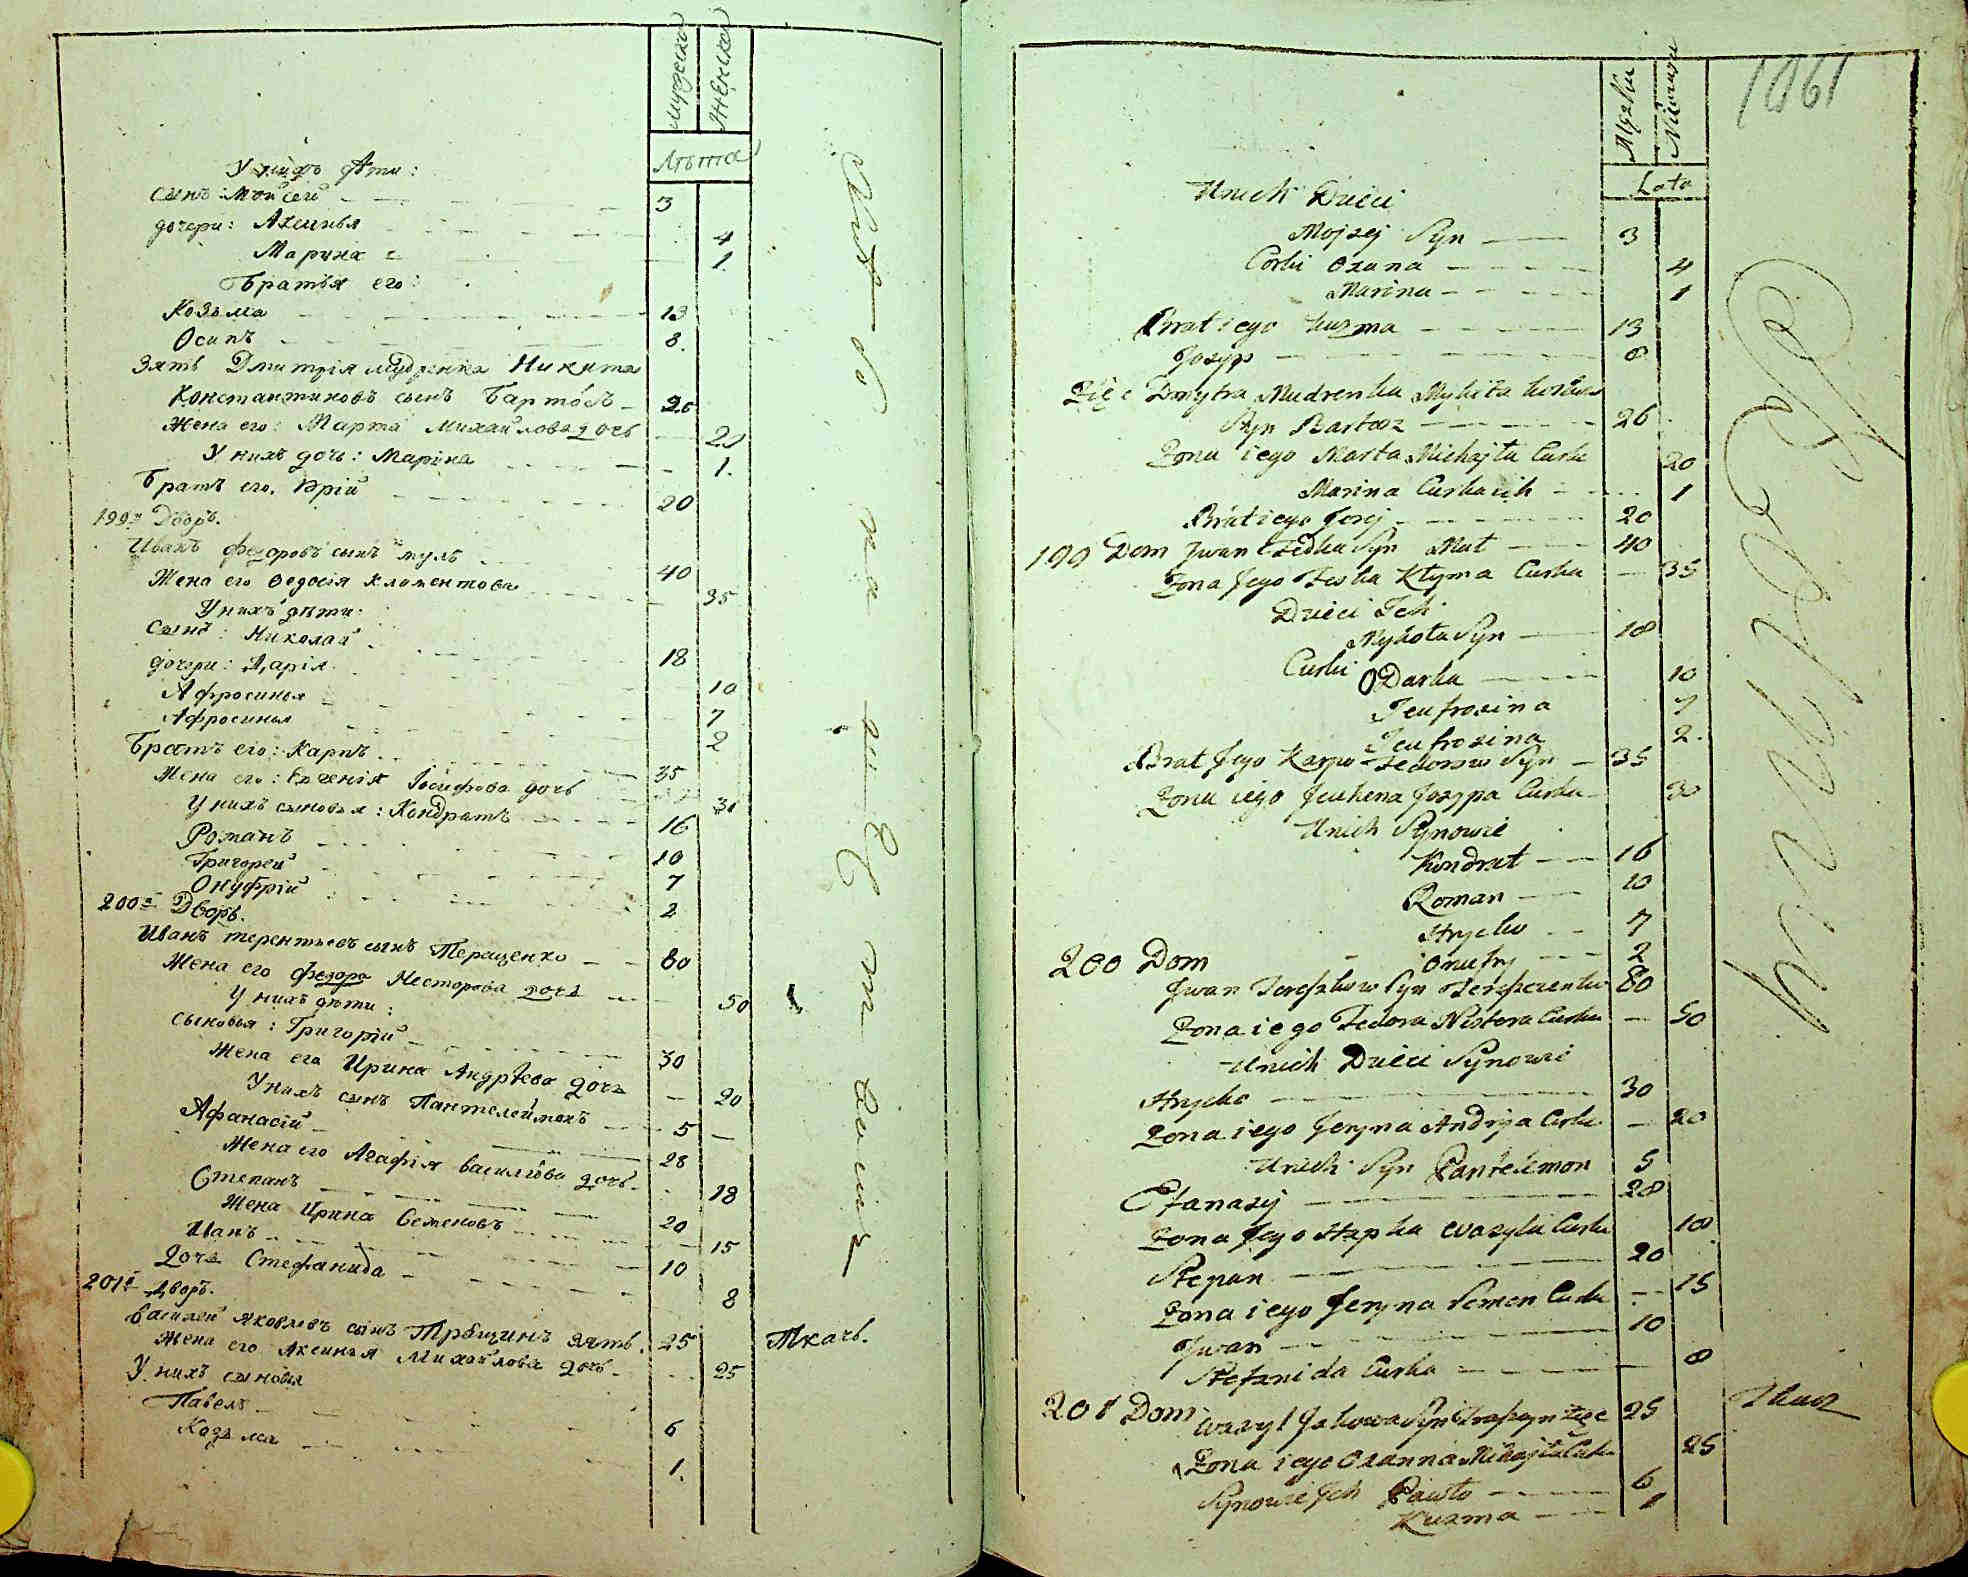 Мужеска
Женска
Лѣта
У нихъ дѣти:
сынъ: Мойсей 3
дочери: Аксинья 4
Марина 1.
Братья его:
Козьма 13
Осипъ 8.
Зять Дмитрія Мудренка Никита
Константиновъ сынъ Бартошъ 26
Жена его: Марта Михайлова дочь 20
У нихъ дочь: Марина 1.
Братъ его. Юрій 20
199й Дворъ.
Иванъ Федоровъ сынъ Мулъ 40
Жена его Феодосія Климентова 35
У нихъ дѣти:
Сынъ: Николай 18
дочери: Дарія 10
Афросинья 7
Афросинья 2
Братъ его: Карпъ 35
Жена его: Евгенія Іосифова дочь 30
У нихъ сыновья: Кондратъ 16
Романъ 10
Григорей 7
Онуфрій 2
200й Дворъ.
Иванъ Терентьевъ сынъ Терещенко 60
Жена его Федора Несторова дочь 50
У нихъ дѣти:
сыновья: Григорій 30
Жена его Ирина Андрѣева дочь 20
У нихъ сынъ Пантелеймонъ 5
Афанасій 28
Жена его Агафія Васильева дочь 18
Степанъ 20
Жена Ирина Семеновъ 15
Иванъ 10
Дочь Стефанида 8
201й Дворъ.
Василей Яковлевъ сынъ зять. 25 Ткачь.
Жена его Аксинья Михайлова дочь 25
У нихъ сыновья
Павелъ 6
Козьма 1.
1861
Męzkie
Niewieście
Lata
Unich Dzieci
Mojzej Syn 3
Corki Oxana 4
Marina 1
Brat iego Kuzma 13
Jozyp 8
Zięc Dmytra Mudrenka Mykita
Syn Bartosz 26
Zona iego Marta Michajła Curka 20
Marina Curka ich 1
Brat iego Jorej 20
199 Dom Jwan Fedka Syn Mul 40
Zona Jego Feska Kłyma Curka 35
Dzieci Ich
Mykoła Syn 18
Curki ODarka 10
Jeufrosina 7
Jeufrosina 2.
Brat Jego Karpo Fedorow Syn 35
Zona iego Jeuhena Jozypa Curka 30
Unich Synowie
Kondrat 16
Roman 10
Hryćko 7
Onufry 2
200 Dom
Jwan Tereszkow Syn Tereszczenko 60
Zona iego Fedora Nestora Curka 50
Unich Dzieci Synowie
Hryćko 30
Zona iego Jeryna Andrija Curka 20
Unich Syn Pantelemon 5
Ofanasij 28
Zona Jego Hapka Wasyla Curka 18
Stepan 20
Zona iego Jeryna Semen Curka 15
Jwan 10
Stefanida Curka 8
201 Dom Wasyl Jakowa Syn Zięc 25 Tkacz
Zona iego Oxanna Mihajła Curka 25
Synowie Ich Pawło 6
Kuzma 1